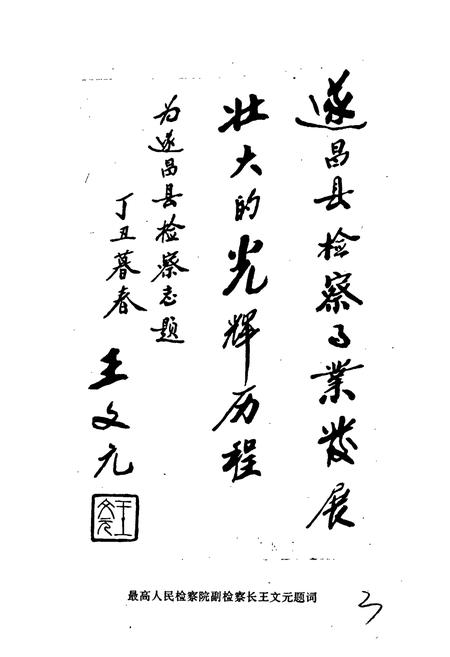 遂昌县检察事业发展
壮大的光辉历程
为遂昌县检察志题
丁丑暮春
王文元
王文元
最高人民检察院副检察长王文元题词
3